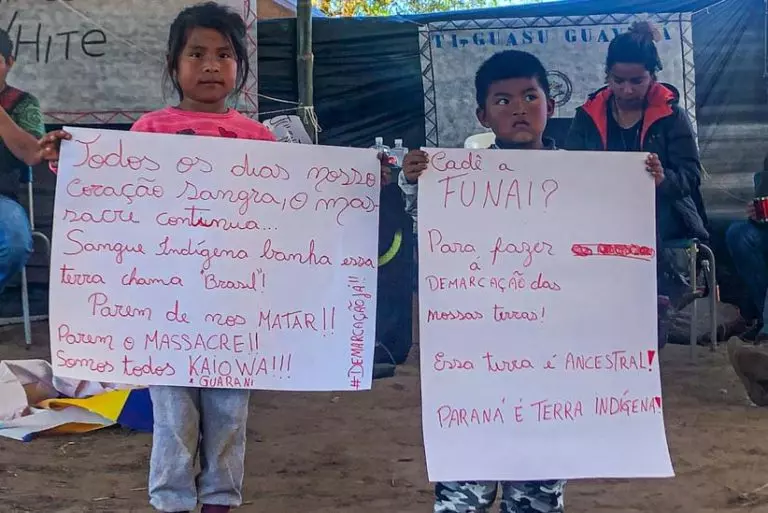 WHITE
TI-GUASU GUAVIRÁ
Todos os dias nosso
coração sangra, o mas-
sacre continua...
Sangue Indígena banha essa
terra chama "Brasil"!
Parem de nos MATAR!!
Parem o MASSACRE!!
Somos todos KAIOWA!!!
& GUARANI
#DEMARCAÇÃO JÁ!!
Cadê a
FUNAI?
Para fazer
á
DEMARCAÇÃO das
nossas terras!
Essa terra é ANCESTRAL!
PARANÁ É TERRA INDÍGENA!